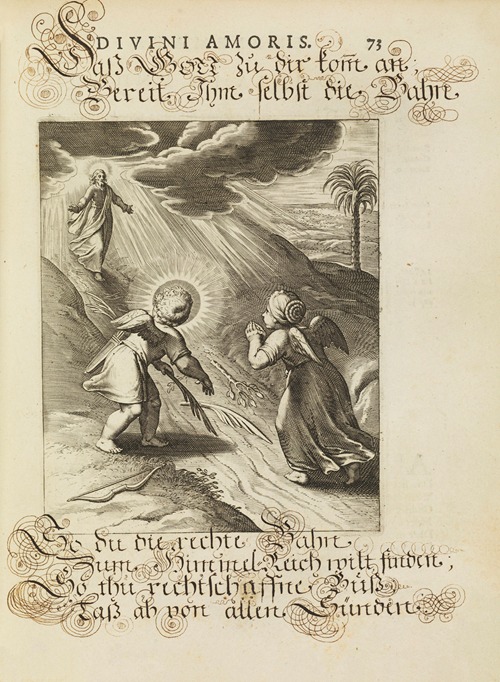 DIVINI AMORIS. 73
Daß Gott zu dir kom̃ an;
Bereit, Ihm selbst die Bahn
So du die rechte Bahn
Zum Himmel Reich wilt finden;
So thu rechtschaffne Büß
Laß ab von allen Sünden